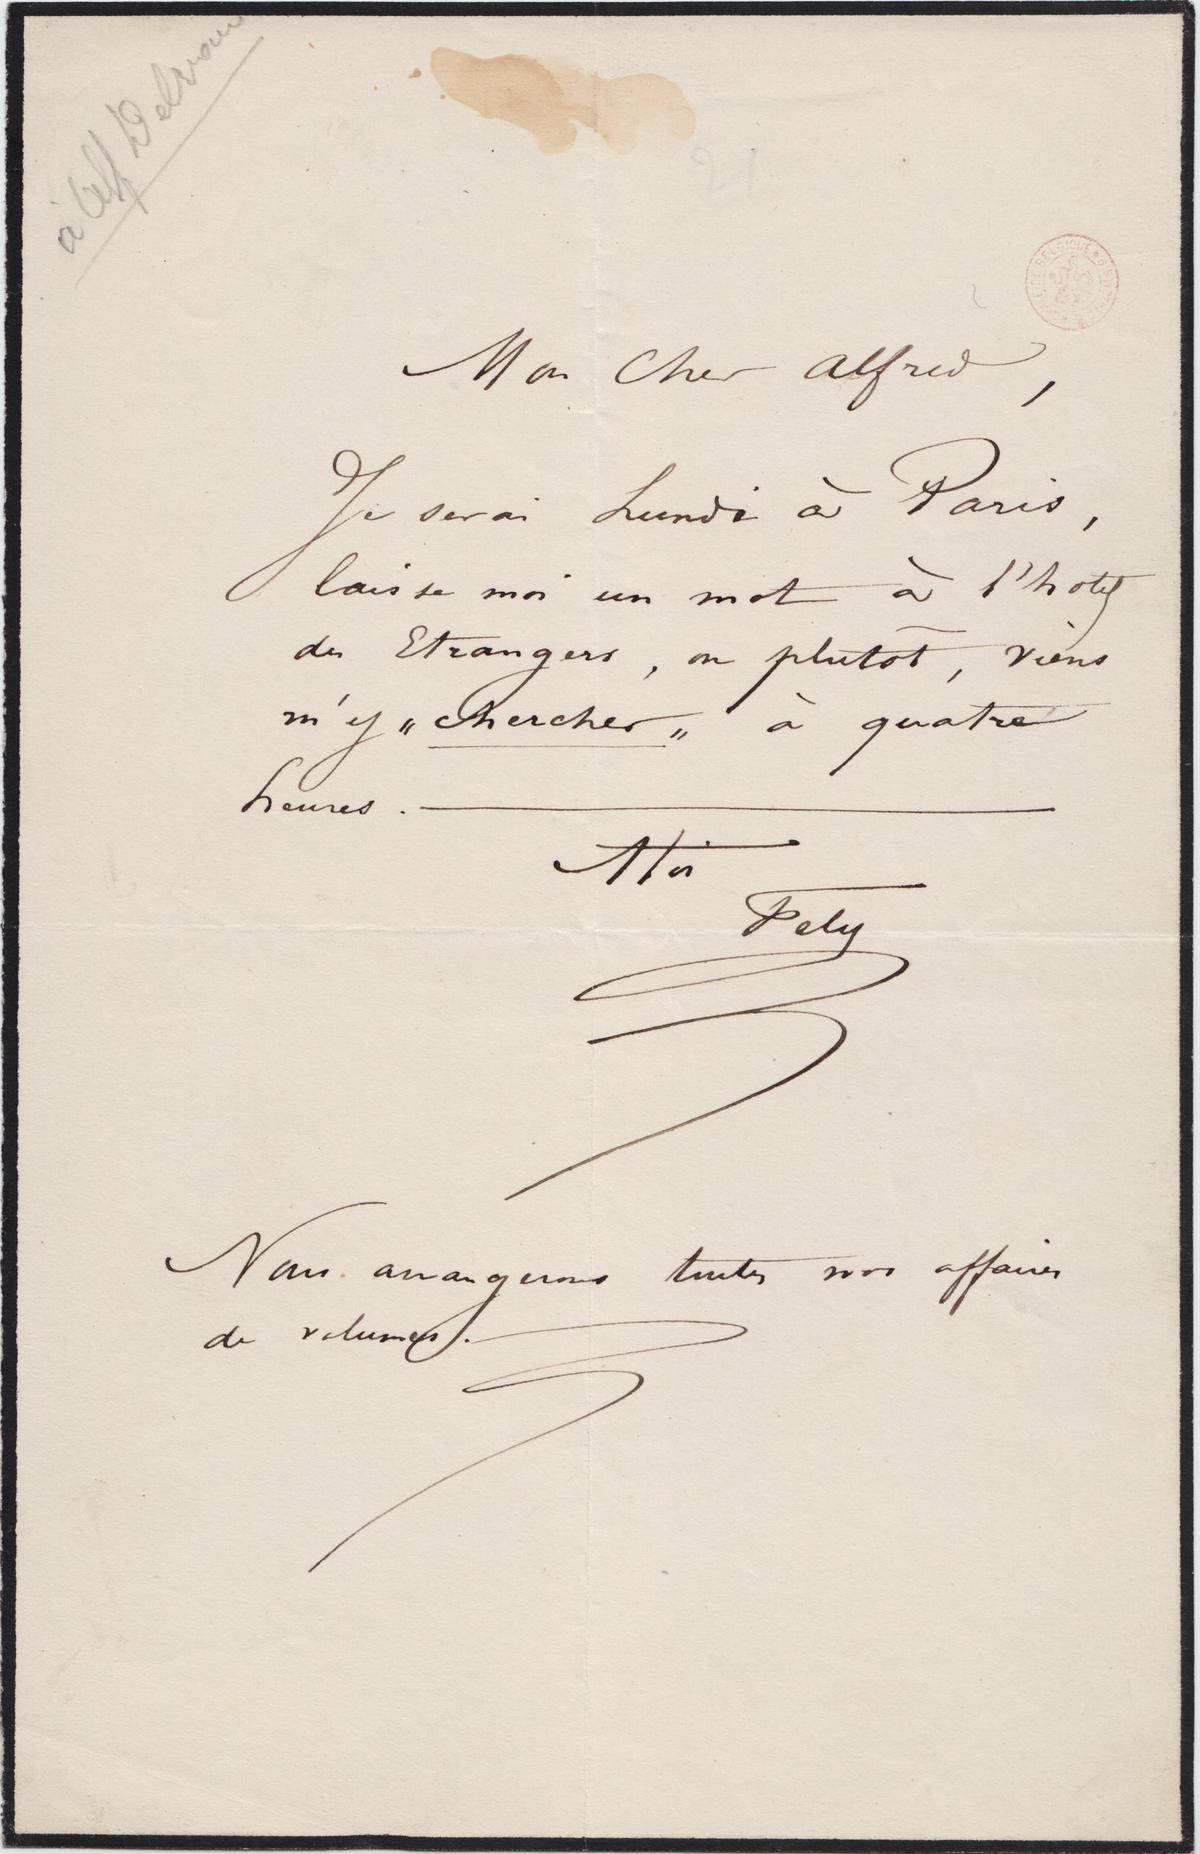 à Alf Delvau
21
Mon cher Alfred,
Je serai Lundi à Paris,
laisse moi un mot à l'hotel
des Etrangers, ou plutôt, viens
m'y „chercher„ à quatre
heures.
A toi
Fély
Nous arrangerons toutes nos affaires
de volumes.